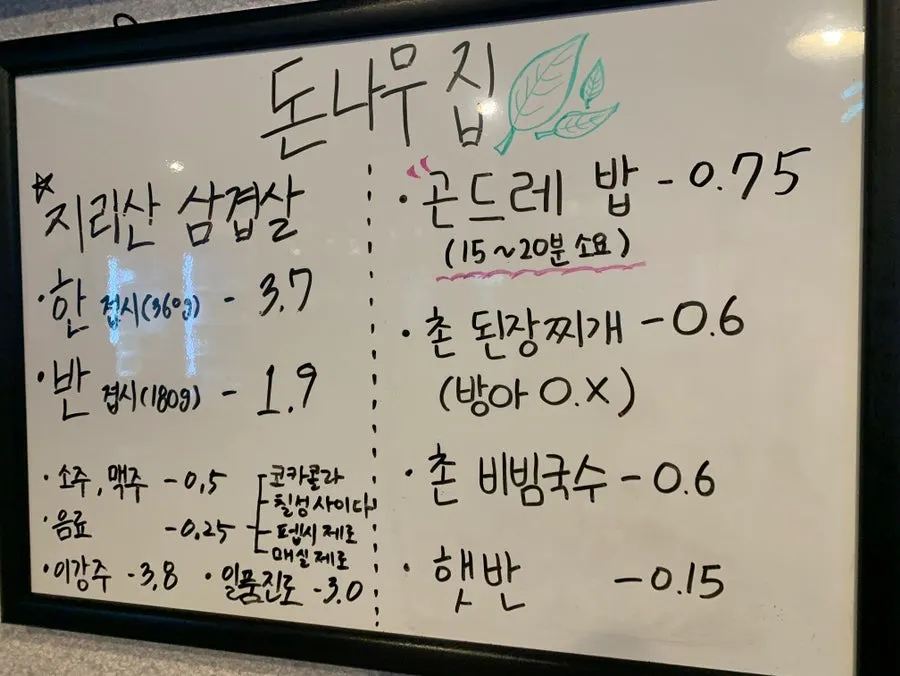 돈나무집
지리산 삼겹살
·한 접시(360g) - 3.7
·반 접시(180g) - 1.9
·소주, 맥주 -0.5
·음료 -0.25
코카콜라
칠성사이다
펩시 제로
매실 제로
·이강주 -3.8 ·일품진로 -3.0
·곤드레 밥 -0.75
(15~20분 소요)
·촌 된장찌개 -0.6
(방아 O.X)
·촌 비빔국수 -0.6
·햇반 -0.15